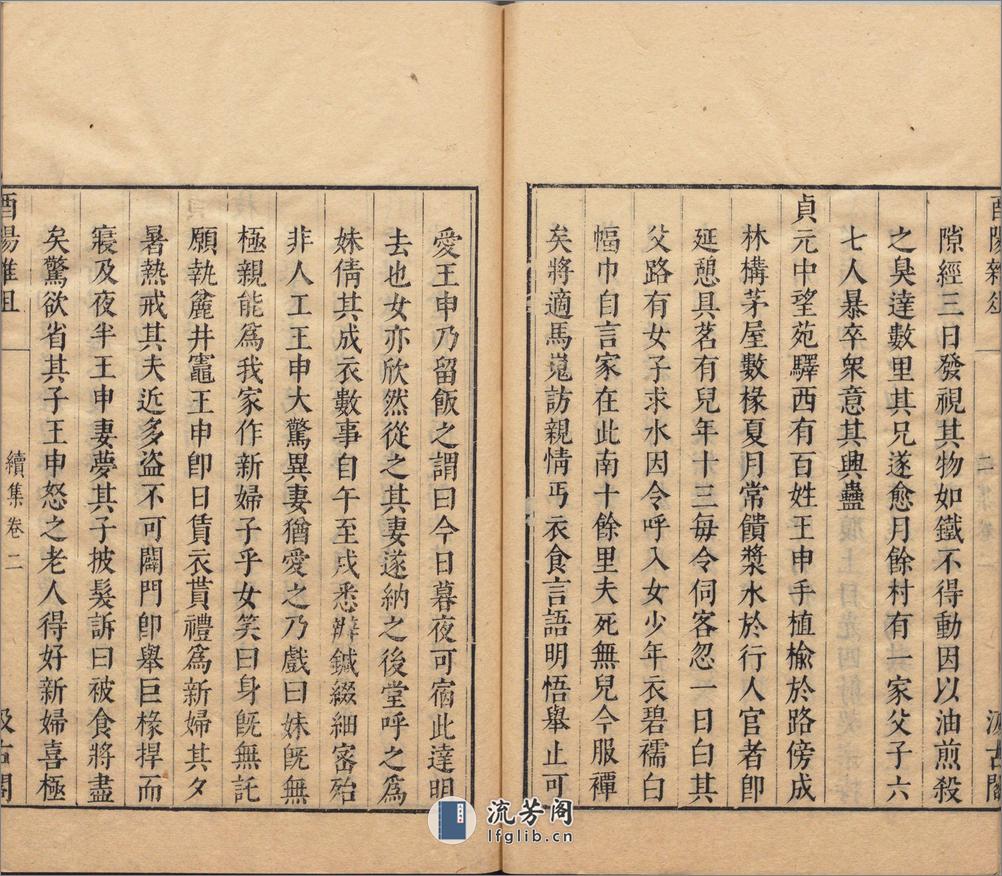 隙經三日發視其物如鐵不得動因以油煎殺
之臭達數里其兄遂愈月餘村有一家父子六
七人暴卒衆意其興蠱
貞元中望苑驛西有百姓王申手植榆於路傍成
林構茅屋數椽夏月常饋漿水於行人官者卽
延憩具茗有兒年十三每令伺客忽一日白其
父路有女子求水因令呼入女少年衣碧襦白
幅巾自言家在此南十餘里夫死無兒今服禫
矣將適馬嵬訪親情丐衣食言語明悟舉止可
愛王申乃留飯之謂曰今日暮夜可宿此達明
去也女亦欣然從之其妻遂納之後堂呼之爲
妹倩其成衣數事自午至戌悉辦鍼綴細密殆
非人工王申大驚異妻猶愛之乃戲曰妹旣無
極親能爲我家作新婦子乎女笑曰身旣無託
願執麄井竈王申卽日賃衣貰禮爲新婦其夕
暑熱戒其夫近多盜不可闢門卽舉巨椽捍而
寢及夜半王申妻夢其子披髮訴曰被食將盡
矣驚欲省其子王申怒之老人得好新婦喜極
續集卷二
流芳阁
lfglib.cn